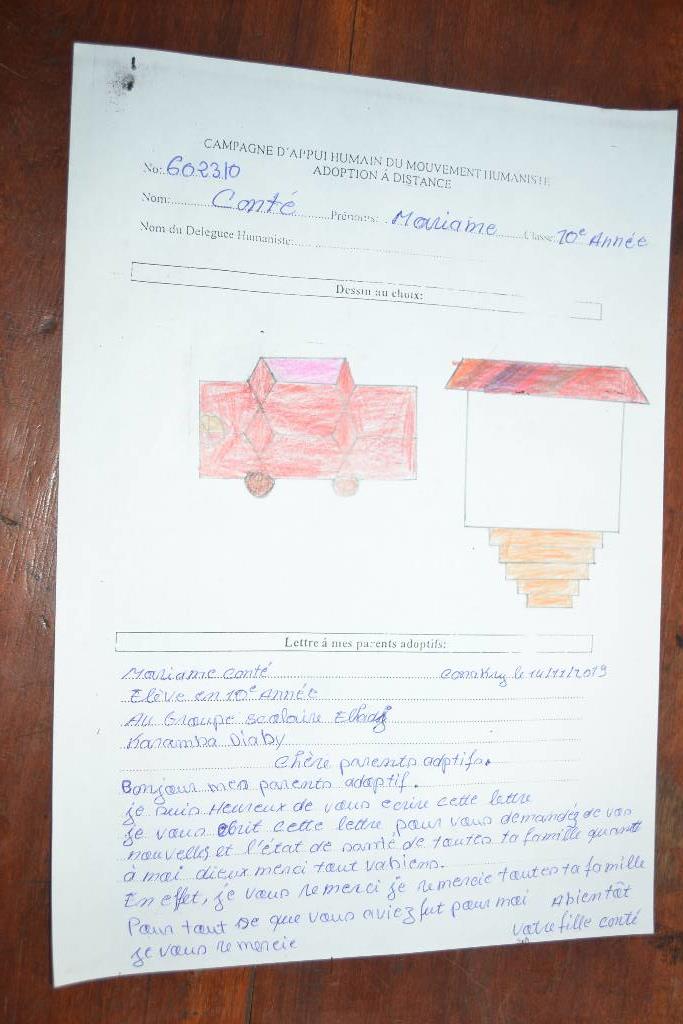 CAMPAGNE D'APPUI HUMAIN DU MOUVEMENT HUMANISTE
ADOPTION Á DISTANCE
No: 602310
Nom: Conté Prénoms: Mariame Classe: 10e Année
Nom du Deleguee Humaniste:
Dessin au choix:
Lettre á mes parents adoptifs:
Mariame conté Conakry le 14/11/2019
Elève en 10e Année
Au Groupe scolaire Elhadj
Karamba Diaby
Chère parents adptifs.
Bonjour mes parents adoptif.
je suis Heureux de vous ecrire cette lettre
je vous ecrit cette lettre pour vous demandéz de vos
nouvelles et l'état de santé de toutes ta famille quant
à moi dieux merci tout vabiens.
En effet, je vous remerci je remercie toutes ta famille
Pour tout se que vous aviez fut pour moi Abientôt
je vous remercie votre fille conté